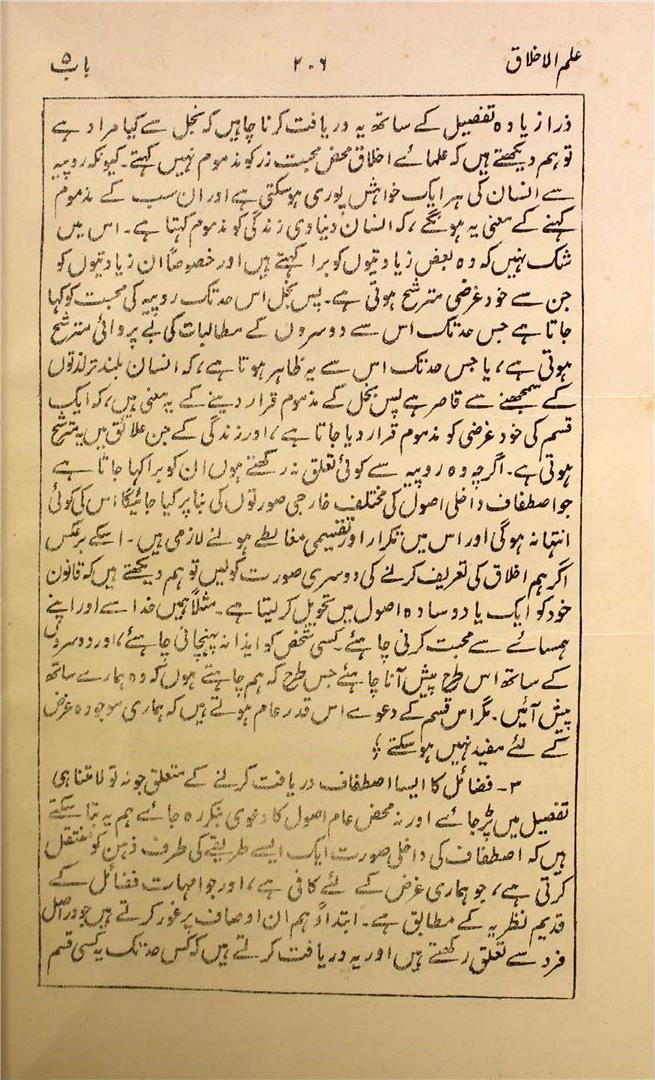 علم الاخلاق ۲۰۶ باب ۵
ذرا زیادہ تفصیل کے ساتھ یہ دریافت کرنا چاہیں کہ بخل سے کیا مراد ہے
تو ہم دیکھتے ہیں کہ علمائے اخلاق محض محبت زر کو مذموم نہیں کہتے۔ کیونکہ روپیہ
سے انسان کی ہر ایک خواہش پوری ہوسکتی ہے اور ان سب کے مذموم
کہنے کے معنی یہ ہونگے، کہ انسان دنیاوی زندگی کو مذموم کہتا ہے۔ اس میں
شک نہیں کہ وہ بعض زیادتیوں کو برا کہتے ہیں اور خصوصاً ان زیادتیوں کو
جن سے خود غرضی مترشح ہوتی ہے۔ پس بخل اس حد تک روپیہ کی محبت کو کہا
جاتا ہے جس حد تک اس سے دوسروں کے مطالبات کی بے پروائی مترشح
ہوتی ہے، یا جس حد تک اس سے یہ ظاہر ہوتا ہے، کہ انسان بلند تر لذتوں
کے سمجھنے سے قاصر ہے پس بخل کے مذموم قرار دینے کے یہ معنی ہیں، کہ ایک
قسم کی خود غرضی کو مذموم قرار دیا جاتا ہے، اور زندگی کے جن علائق میں یہ مترشح
ہوتی ہے۔ اگرچہ وہ روپیہ سے کوئی تعلق نہ رکھتے ہوں ان کو برا کہا جاتا ہے
جو اصطفاف داخلی اصول کی مختلف خارجی صورتوں کی بنا پر کیا جائیگا اس کی کوئی
انتہا نہ ہوگی اور اس میں تکرار اور تقسیمی مغالطے ہونے لازمی ہیں۔ اسکے برعکس
اگر ہم اخلاق کی تعریف کرنے کی دوسری صورت کو لیں تو ہم دیکھتے ہیں کہ قانون
خود کو ایک یا دو سادہ اصول میں تحویل کرلیتا ہے۔ مثلاً ہمیں خدا سے اور اپنے
ہمسائے سے محبت کرنی چاہئے۔ کسی شخص کو ایذا نہ پہنچانی چاہئے، اور دوسروں
کے ساتھ اس طرح پیش آنا چاہئے جس طرح کہ ہم چاہتے ہوں کہ وہ ہمارے ساتھ
پیش آئیں۔ مگر اس قسم کے دعوے اس قدر عام ہوتے ہیں کہ ہماری موجودہ غرض
کے لئے مفید نہیں ہوسکتے
۳۔ فضائل کا ایسا اصطفاف دریافت کرنے کے متعلق جو نہ تو لامتناہی
تفصیل میں پڑ جائے اور نہ محض عام اصول کا دعوی بنکر رہ جائے ہم یہ بتا سکتے
ہیں کہ اصطفاف کی داخلی صورت ایک ایسے طریقے کی طرف ذہن کو منتقل
کرتی ہے، جو ہماری غرض کے لئے کافی ہے، اور جو امہات فضائل کے
قدیم نظریہ کے مطابق ہے۔ ابتداءً ہم ان اوصاف پر غور کرتے ہیں جو دراصل
فرد سے تعلق رکھتے ہیں اور یہ دریافت کرتے ہیں کہ کس حد تک یہ کسی قسم